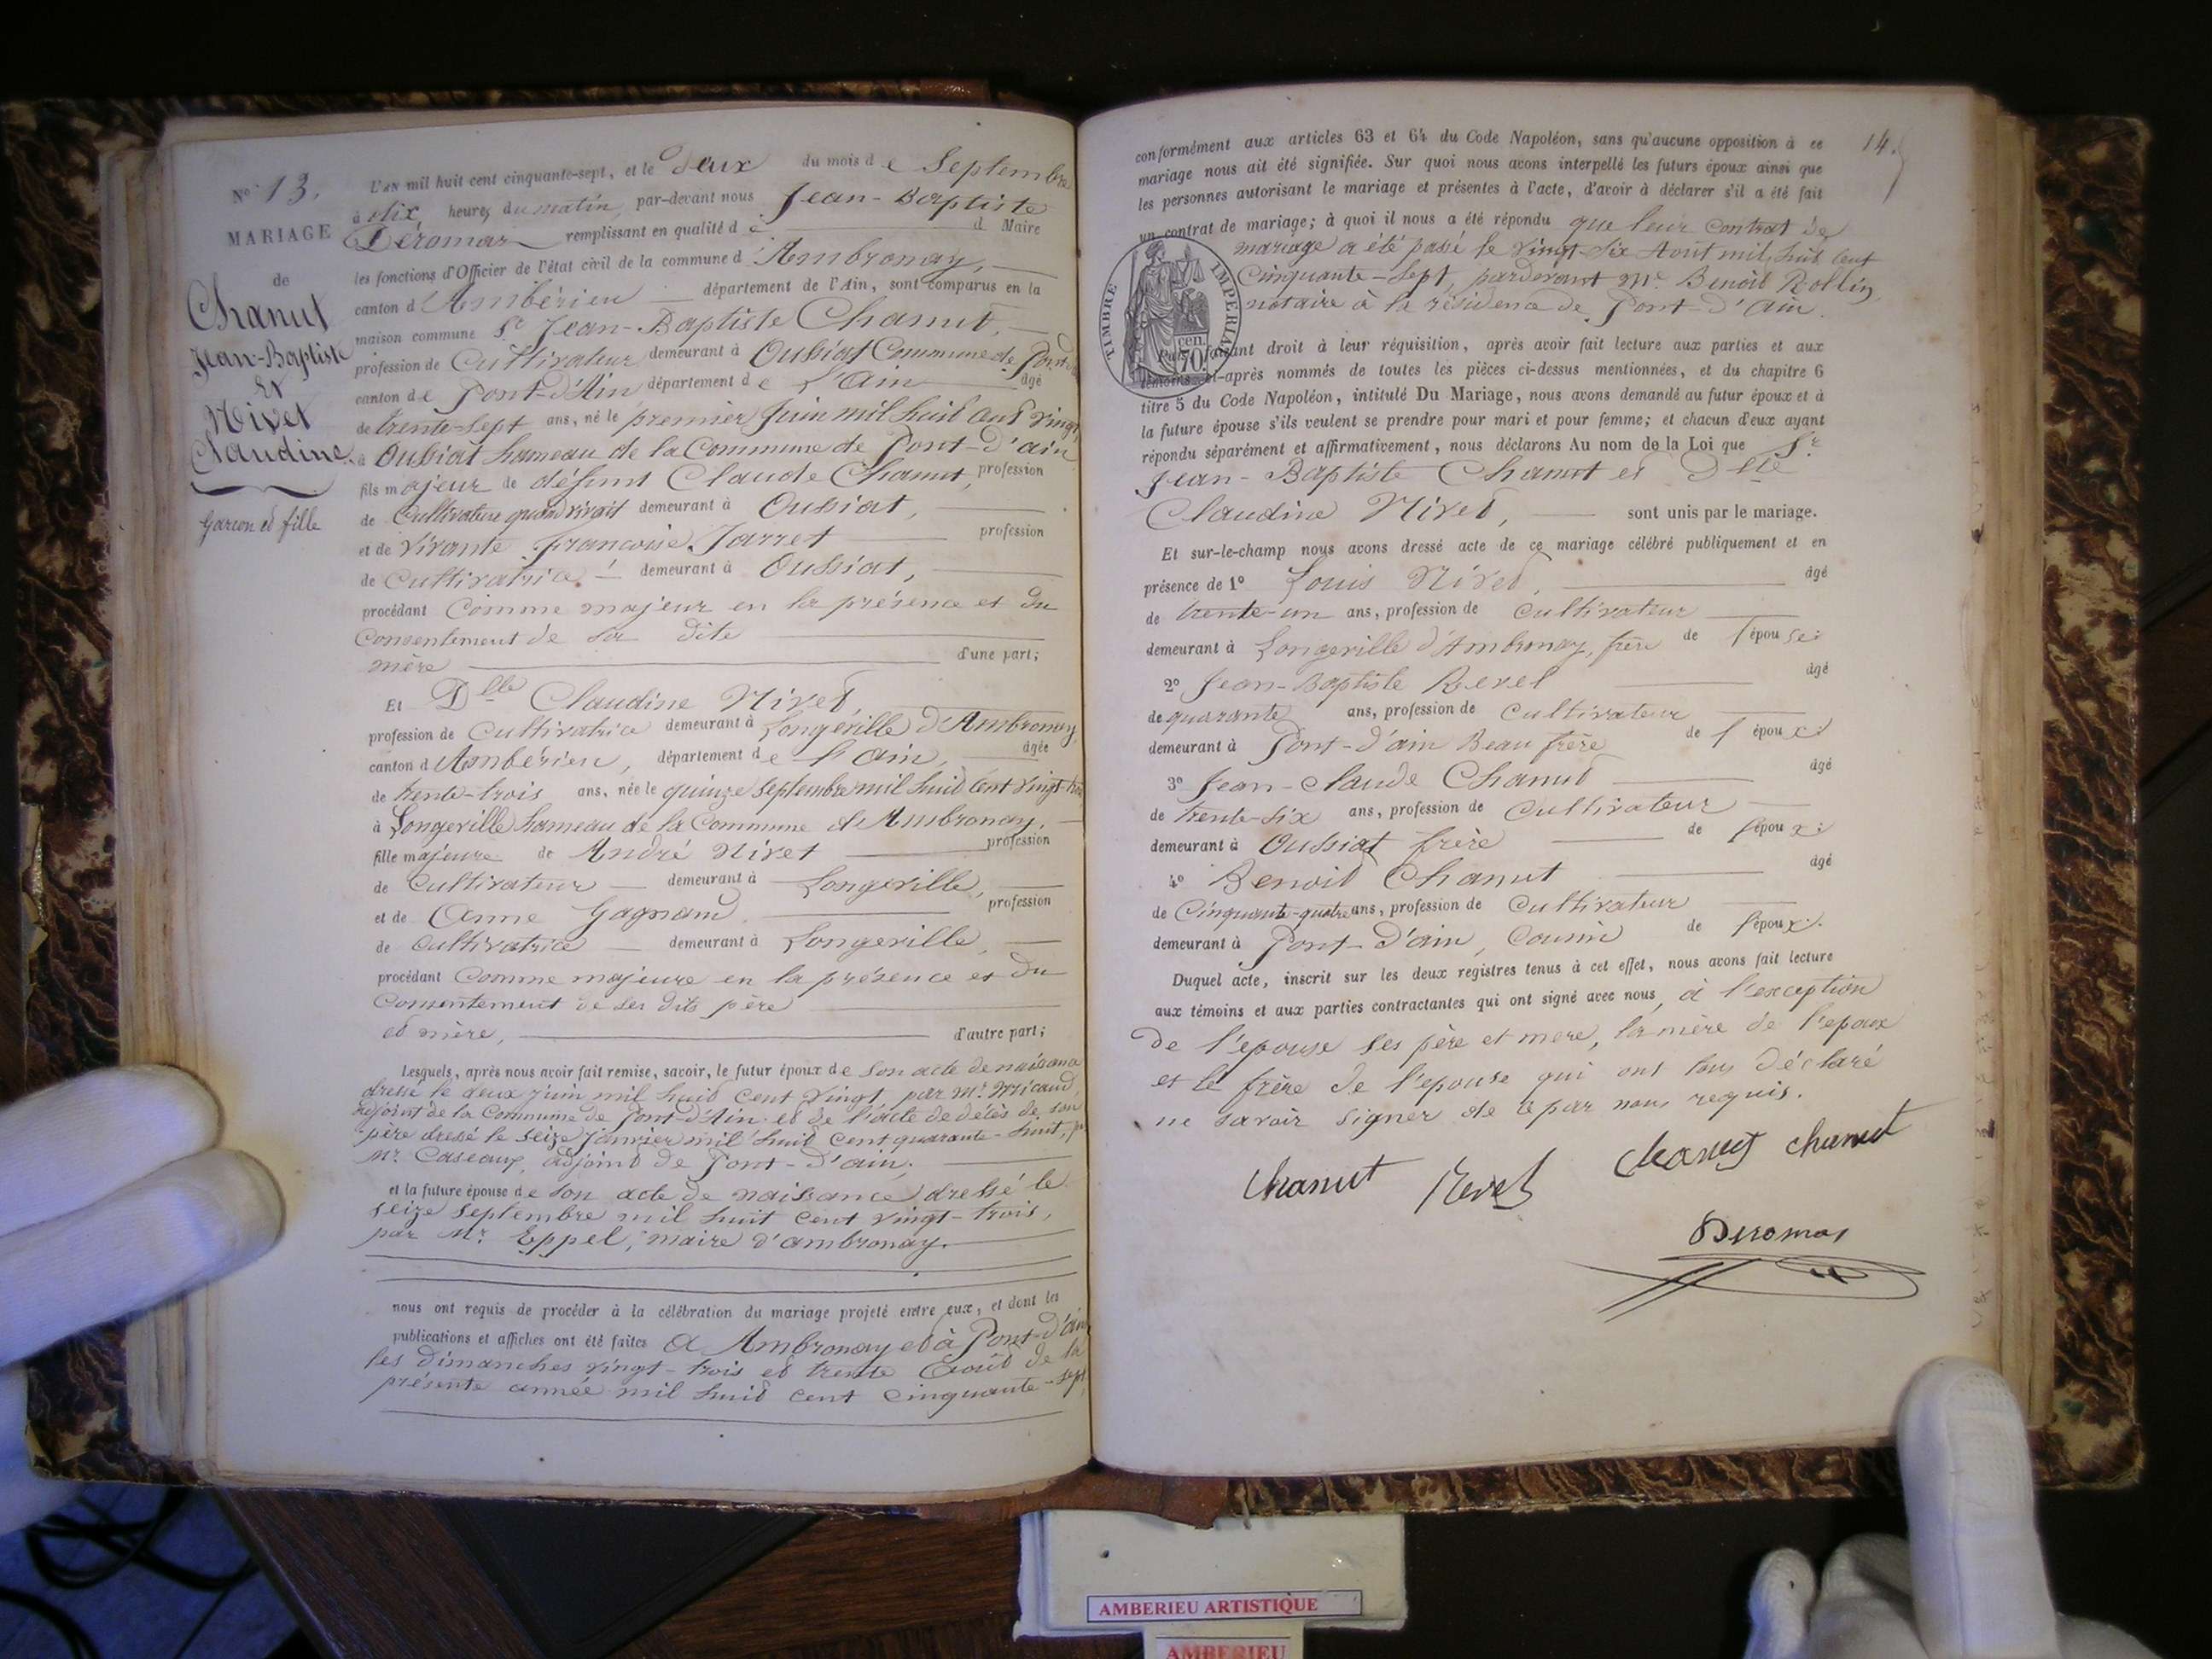 No. 13.
MARIAGE
de
Chanut
Jean-Baptiste
Et
Nivet
Claudine.
Garcon et fille
L'AN mil huit cent cinquante-sept, et le Deux du mois de Septembre
à dix heures du matin, par-devant nous Jean-Baptiste
Déromas remplissant en qualité de d Maire
les fonctions d'Officier de l'état civil de la commune d'Ambronay,
canton d'Ambérieu département de l'Ain, sont comparus en la
maison commune Sr Jean-Baptiste Chanut,
profession de Cultivateur demeurant à Oussiat Commune de Pont d'
canton de Pont-d'Ain département de L'Ain âgé
de trente-sept ans, né le premier Juin mil huit cent vingt,
à Oussiat hameau de la Commune de Pont-d'ain
fils majeur de défunt Claude Chanut, profession
de Cultivateur quand vivait demeurant à Oussiat,
et de vivante Francoise Jarret profession
de Cultivatrice demeurant à Oussiat,
procédant Comme majeur en la présence et du
Consentement de sa dite
mère d'une part;
Et Dlle Claudine Nivet,
profession de Cultivatrice demeurant à Longeville d'Ambronay,
canton d'Ambérieu, département de l'ain, âgée
de trente-trois ans, née le quinze Septembre mil huit cent vingt-trois
à Longeville hameau de la Commune d'Ambronay,
fille majeure de André Nivet profession
de Cultivateur demeurant à Longeville,
et de Anne Gagnand profession
de Cultivatrice demeurant à Longeville,
procédant Comme majeure en la présence et du
Consentement de ses dits père
et mère, d'autre part;
Lesquels, après nous avoir fait remise, savoir, le futur époux de son acte de naissance
dressé le deux juin mil huit cent vingt, par Mr Micaud,
adjoint de la Commune de Pont-d'Ain et de l'acte de décès de son
père dressé le seize janvier mil huit cent quarante-huit, p
Mr Caseaux, adjoint de Pont-d'ain;
et la future épouse de son acte de naissance dressé le
seize septembre mil huit cent vingt-trois,
par Mr Eppel, maire d'ambronay.
nous ont requis de procéder à la célébration du mariage projeté entre eux, et dont les
publications et affiches ont été faites à Ambronay et à Pont-d'ain
les dimanches vingt-trois et trente Août de la
présente année mil huit cent cinquante-sept
14.
conformément aux articles 63 et 64 du Code Napoléon, sans qu'aucune opposition à ce
mariage nous ait été signifiée. Sur quoi nous avons interpellé les futurs époux ainsi que
les personnes autorisant le mariage et présentes à l'acte, d'avoir à déclarer s'il a été fait
un contrat de mariage; à quoi il nous a été répondu que leur contrat de
mariage a été passé le vingt six Août mil huit cent
Cinquante-sept, pardevant Me Benoit Rollin
notaire à la résidence de Pont-d'Ain.
TIMBRE IMPERIAL
cen.
70.
Puis faisant droit à leur réquisition, après avoir fait lecture aux parties et aux
témoins ci-après nommés de toutes les pièces ci-dessus mentionnées, et du chapitre 6
titre 5 du Code Napoléon, intitulé Du Mariage, nous avons demandé au futur époux et à
la future épouse s'ils veulent se prendre pour mari et pour femme; et chacun d'eux ayant
répondu séparément et affirmativement, nous déclarons Au nom de la Loi que Sr
Jean-Baptiste Chanut et Dlle
Claudine Nivet, sont unis par le mariage.
Et sur-le-champ nous avons dressé acte de ce mariage célébré publiquement et en
présence de 1o Louis Nivet, âgé
de trente-un ans, profession de Cultivateur
demeurant à Longeville d'Ambronay, frère de l'épouse;
2o Jean-Baptiste Revel âgé
de quarante ans, profession de Cultivateur
demeurant à Pont-d'ain Beau frère de l'époux;
3o Jean-Claude Chanut âgé
de trente-six ans, profession de Cultivateur
demeurant à Oussiat frère de l'époux;
4o Benoit Chanut âgé
de Cinquante-quatre ans, profession de Cultivateur
demeurant à Pont-d'ain, Cousin de l'époux.
Duquel acte, inscrit sur les deux registres tenus à cet effet, nous avons fait lecture
aux témoins et aux parties contractantes qui ont signé avec nous, à l'exception
de l'epouse ses père et mere, la mère de l'epoux
et le frère de l'epouse qui ont tous déclaré
ne savoir signer de ce par nous requis.
Chanut Revel Chanut chanut
Deromas
AMBERIEU ARTISTIQUE
AMBERIEU